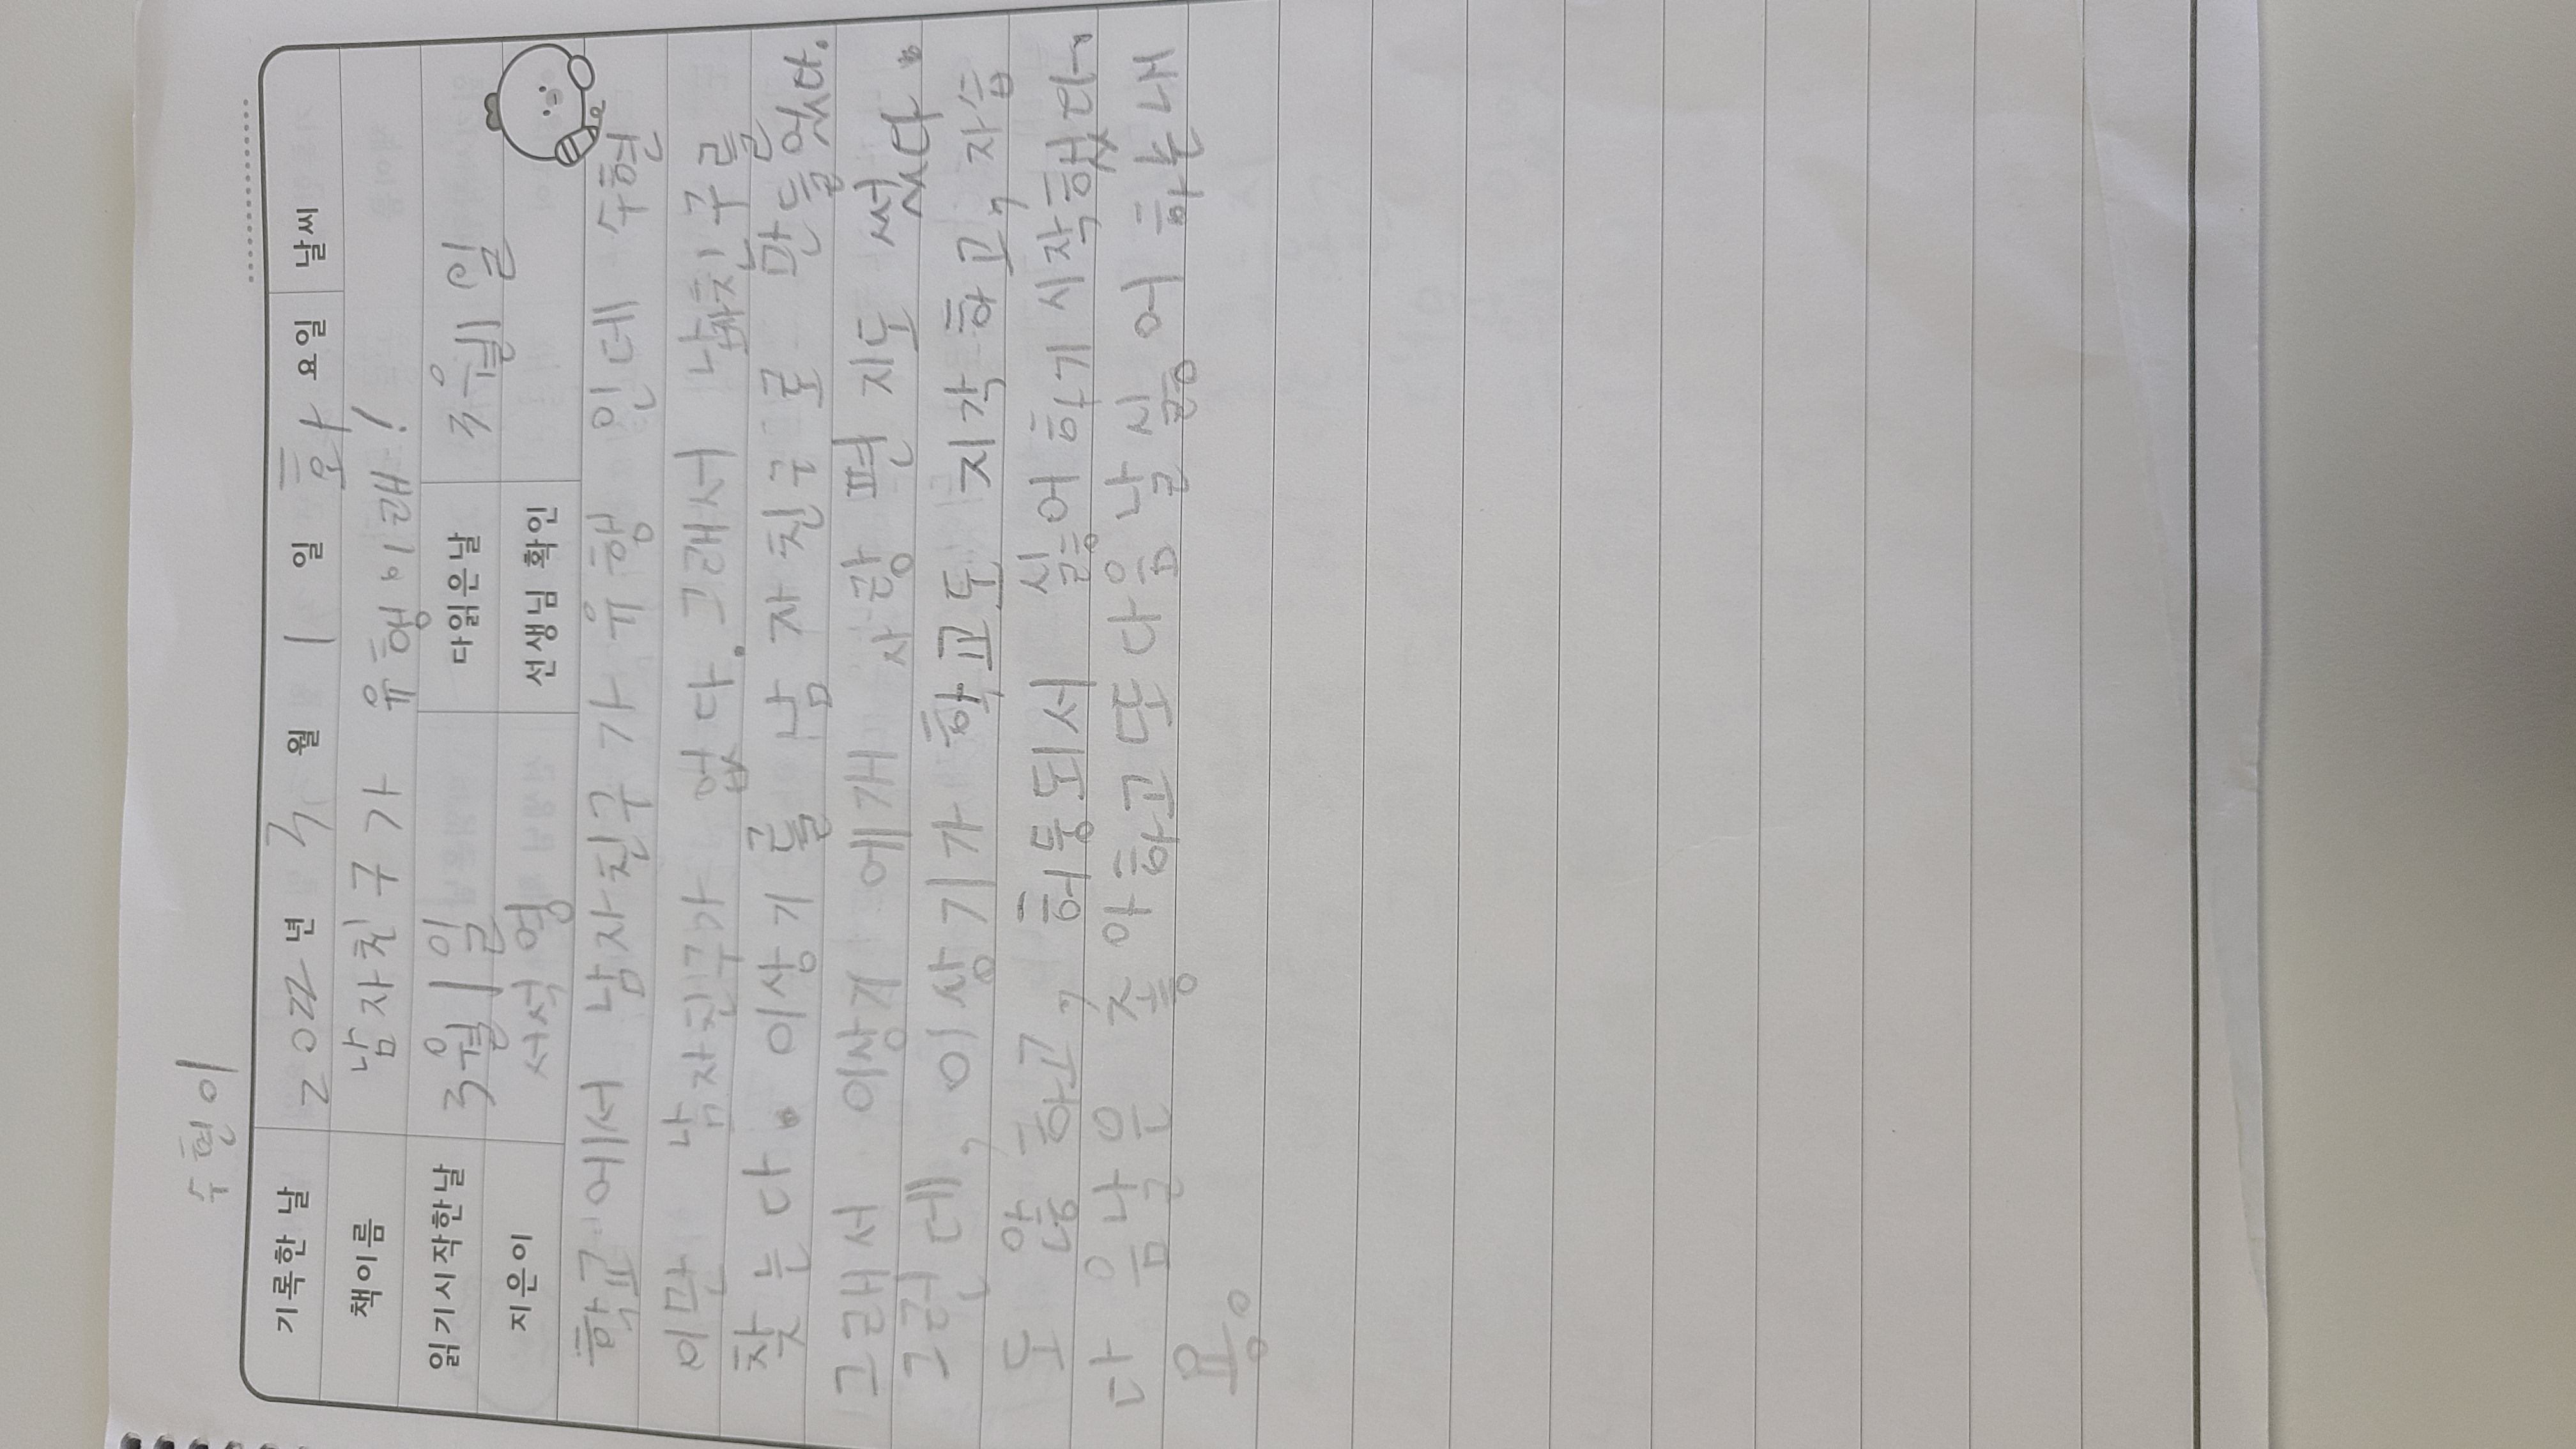 수현이
기록한 날 2022년 3월 1일 화요일 날씨
책이름 남자친구가 유행이래!
읽기시작한날 3월 1일 다읽은날 3월 1일
지은이 서석영 선생님 확인
학교에서 남자친구가 유행 인데 수현
이만 남자친구가 없다. 그래서 남자친구를
찾는다. 이상기를 남자친구로 만들었다.
그래서 이상기 에개 사랑편지도 썼다.
그런데, 이상기가 학교도 지각하고, 자습
도 않하고, 허둥되서 싫어하기 시작했다.
다음날은 좋아하고 또 다음날 싫어 하는 내
용.